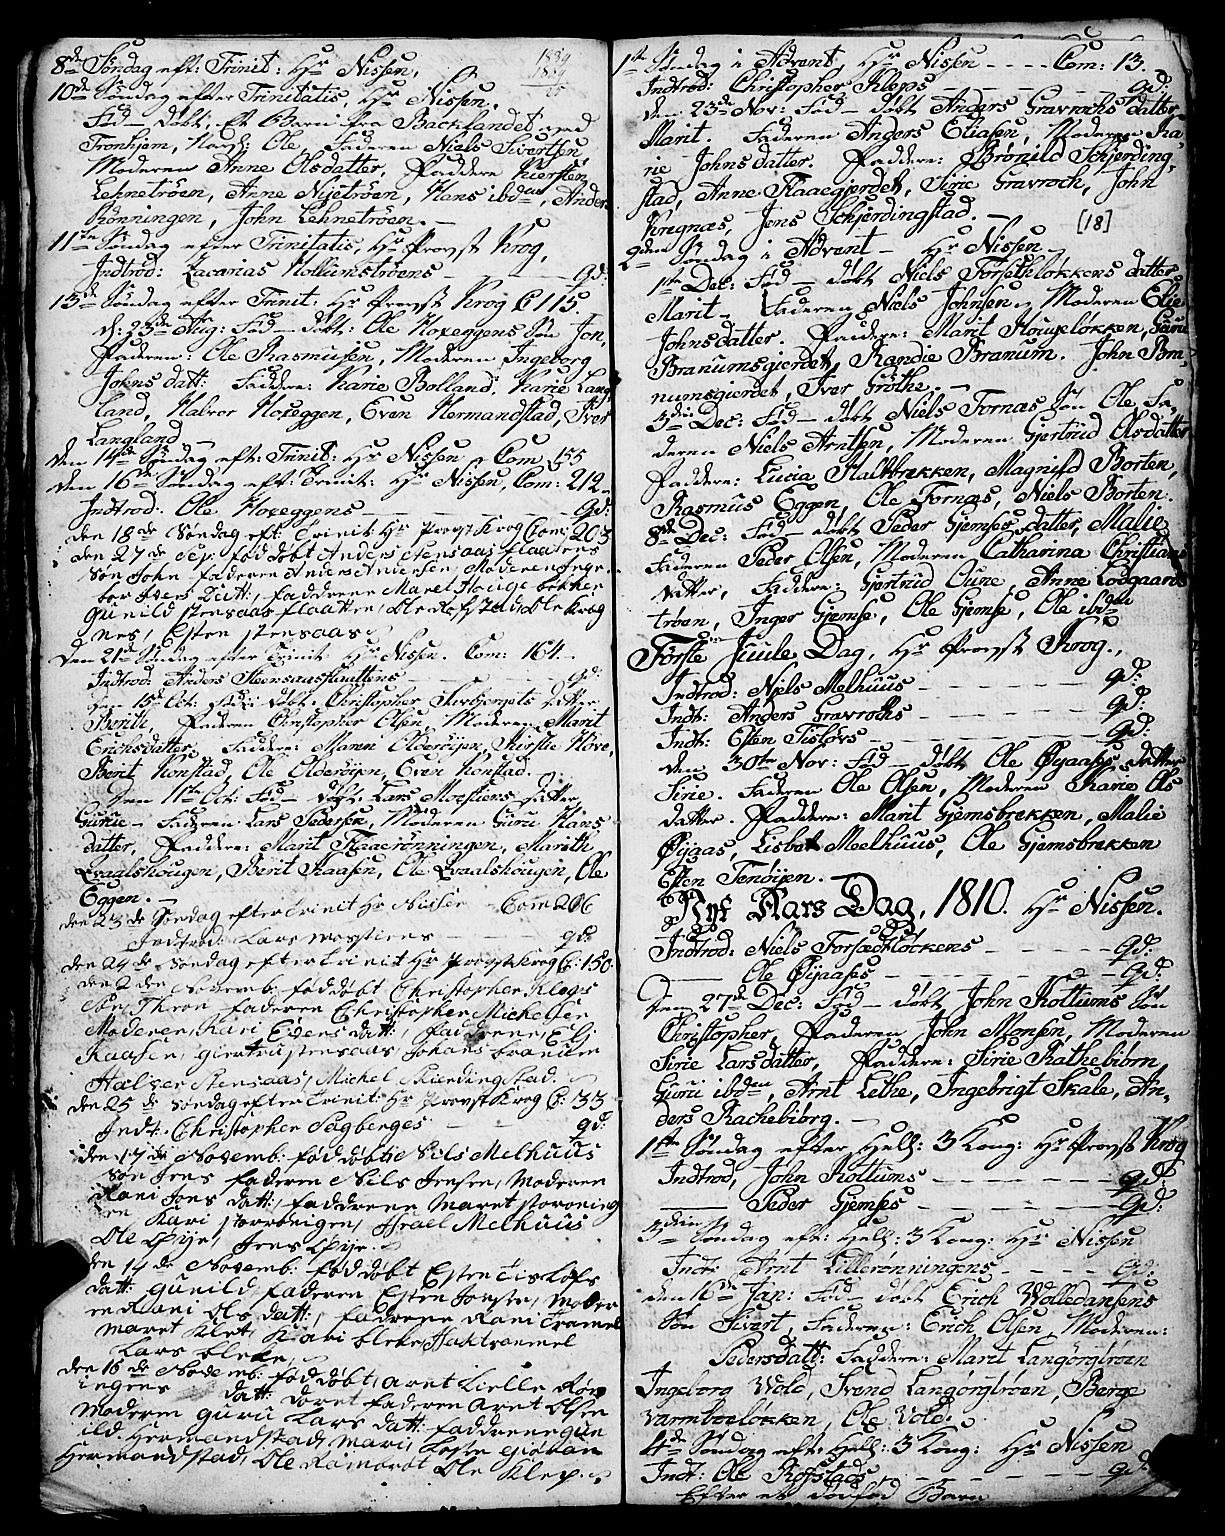 8de Søndag eft: Trinit: Hr Nissen.
10de Søndag efter Trinitatis, Hr Nissen.
Fød - døbt: Et Barn fra Backlandet ved
Tronhjem, Navn: Ole, Faderen Niels Sivertsen
Moderen Anne Olsdatter, Faddere Kiersten
Lehnetrøen, Anne Nyetrøen, Hans ibdm, Anders
Rønningen, John Lehnetrøen.
11te Søndag efter Trinitatis, Hr Provst Krog,
Indtrod: Zacarias Hollumstrøens - gd:
13de Søndag efter Trinit: Hr Provst Krog C 115.
d: 23de Aug: Fød - døbt: Ole Hoxeggens Søn Jon,
Faderen: Ole Rasmusen, Moderen Ingeborg
Johnsdatt: Faddere: Karie Bolland, Karie Lang
land, Halvor Hoxeggen, Even Hermandstad, Iver
Langland
den 14de Søndag eft: Trinit: Hr Nissen Com 155
den 16de Søndag eft: Trinit: Hr Nissen, Com: 212
Indtrod: Ole Hoxeggens - gd:
den 18de Søndag eft: Trinit Hr Provst Krog Com: 203
den 27de Sep: fød døbt Anders Stensaas flaatens
Søn John faderen Anders Andersen Moderen Inge
bor Ivers Datt: fadderne Maret Houge bekken
gunild stensaas flaatten, Ole Rofstad, Ole Krog
nes, Esten stensaas
den 21de Søndag efter Trinit Hr Nissen. Com: 164
Indtrod: Anders Steensaasflaattens - gd:
den 15de Oct: fød: døbt: Christopher Saxbergets datter
Berith, Faderen Christopher Olsen, Moderen Marit
Erichsdatter, Faddere: Maren Olderøijen, Kirstie Hove,
Berit Konstad, Ole Olderøijen, Even Konstad.
Den 11te Oct: Fød - døbt Lars Moestuens datter
Guru - Faderen Lars Pedersen, Moderen Guru Hans
datter, Faddere: Marit Flaaerønningen, Marith
Qvaalshougen, Berit Kaasen, Ole Qvaalshougen, Ole
Eggen.
den 23de Søndag efter Trinit Hr Nissen - Com 206
Indtrod: Lars Mostuens - gd:
den 24de Søndag efter Trinit Hr Provst Krog C: 150
den 2den Novemb fød døbt Christopher Kleps
Søn Thron faderen Christopher Michelsen
Moderen Kari Eders datt:, fadderne Eli
Kaasen, giertru stensaas Johans branum
Halvor Stensaas, Michel Skierdingstad.
den 25de Søndag efter Trinit: Hr Provst Krog C: 33
Indt: Christopher Sagberges - gd:
den 17de Novemb: fød døbt Nils Melhuus
Søn Jens faderen Nils Jensen, Moderen
Rani Jons datt:, fadderne Maret storøning
en Kari storøningen, Israel Melhuus
Ole Øye, Jens Øye.
den 17de Novemb: fød døbt Esten Tisløfs
datt: gunild faderen Esten Jonsen, Moder
en Rani Ols datt:, fadderne Rani Tranmel
maret Klet, Kari bleke, Haktranmel
Lars bleke,
den 16de Novemb: fød døbt, aret Lielle Røn
ingens datt: doret faderen Aret Olsen
Moderen guru Lars datt: fadderne gun
ild Hermandstad, Mari, Loste
Hermandstad, Ole Ole Klep.
1889
1809
1te Søndag i Advent, Hr Nissen - Com: 13
Indtrod: Christopher Kleps - gd:
den 23de Nov: Fød - døbt Anders Gravrochs datter
Marit Faderen Anders Eliasen, Moderen Ka
rie Johnsdatter. Faddere: Brønild Schjerding
stad, Anne Flaaegjerdet, Sirie Gravroch, John
Kregnæs, Jens Schjerdingstad. -
[18]
2den Søndag i Advent - Hr Nissen
1te Dec: Fød - døbt Niels Forsetsløkkens datter
Marit - Faderen Niels Johnsen, Moderen Elie
Johnsdatter. Faddere: Marit Hougeløkken, Guru
Branumsgierdet, Randie Branum. John Bra
numsgierdet, Iver Grøthe. -
3die Dec: Fød - døbt Niels Fornæs Søn Ole, Fa
deren Niels Arntsen, Moderen Gjertrud Olsdatter
Faddere: Lucia Kalbrækken, Magnild Borten,
Rasmus Eggen, Ole Fornæs, Niels Borten.
8de Dec: Fød - døbt Peder Gjemses datter, Malie
Faderen Peder Olsen, Moderen Catharina Christians
datter, Faddere: Gjertrud Oune, Anne Lodgaards
trøen, Inger Gjemse, Ole Gjemse, Ole ibdm
Første Juule Dag, Hr Provst Krog.,
Indtrod: Niels Melhuus - gd:
Indt: Anders Gravrochs - gd:
Indt: Esten Tisløvs - gd:
den 30te Nov: Fød - døbt Ole Øyaases datter
Sirie. Faderen Ole Olsen, Moderen Karie Ols
datter. Faddere: Marit Gjemsbrekken, Malie
Øyaas, Lisbet Meelhuus, Ole Gjemsbrekken
Esten Tenøijen.
Nyt Aars Dag, 1810. Hr Nissen.
Indtrod: Niels Forsætløckens - gd:
Ole Øyaases - gd:
den 27de Dec: Fød - døbt John Hollums Søn
Christopher, Faderen John Monsen, Moderen
Sirie Larsdatter, Faddere: Sirie Rathebiørn
Guru ibdm, Arnt Lethe, Ingebrigt Skale, An
ders Rachebiørg.
1te Søndag efter Hell: 3 Kong: Hr Provst Krog
Indtrod, John Hollums - gd:
Peder Gjemses - gd:
3die Søndag eft: Hell: 3 Kong: Hr Nissen
Indt: Arnt Lillerønningens - gd:
den 16de Jan: Fød - døbt Erich Wolledansens
Søn Sivert, Faderen: Erich Olsen, Moderen:
Pedersdatt: Faddere: Marit Langørgtrøen
Ingeborg Wold, Svend Langørgtrøen, Berge
Varmboeløkken, Ole Vold.
4de Søndag eft: Hell: 3 Kong: Hr Nissen
Indt: Ole Rofstads - gd:
Efter et dødfød Barn